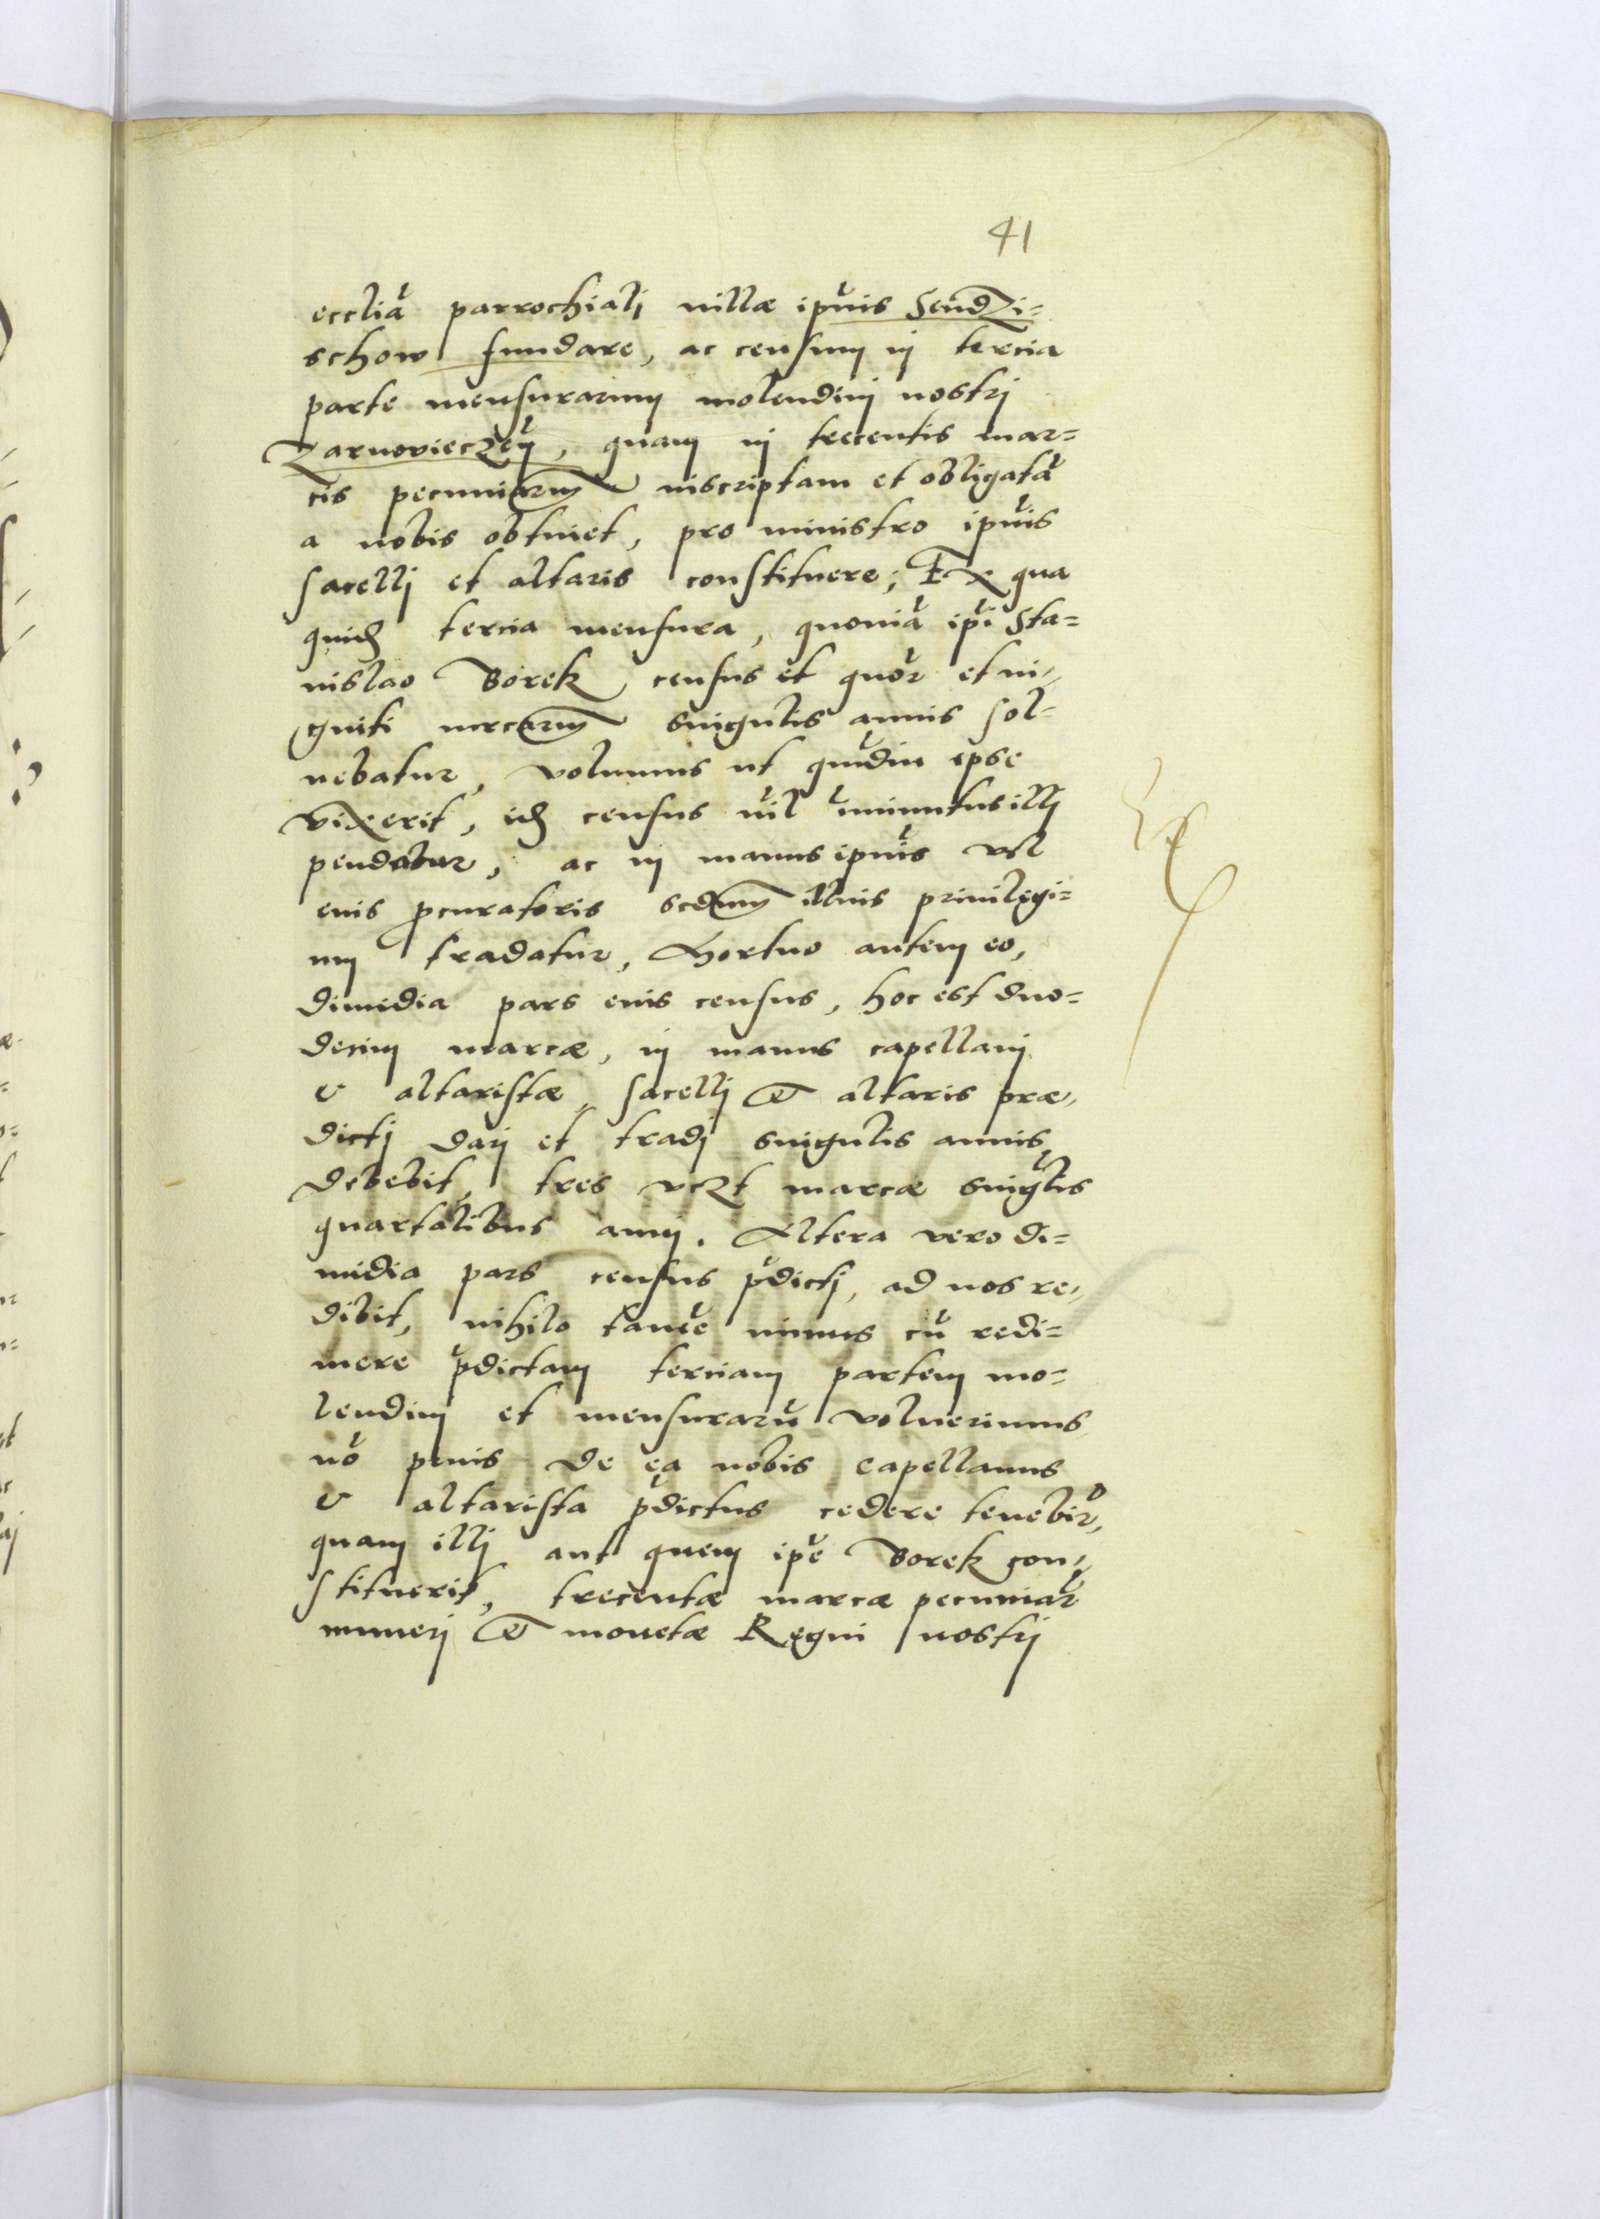 41
ecclia parrochialj villæ ipius Sendzi=
schow fundare, ac censum in tercia
parte mensurarum molendinj nostrj
Zarnovieczen, quam in trecentis mar=
cis pecuniarum inscriptam et obligatā
a nobis obtinet, pro ministro ipius
sacellj et altaris constituere; Ex qua
quid tercia mensura, quoniā ipi Sta=
nislao Borek, census et quor et vi=
ginti marcarum singulis annis sol=
vebatur, volumus ut qudiu ipse
vixerit, id census nil iminutus illj
pendatur, ac in manus ipius vel
eius pcuratoris scdum illius privilegi=
um tradatur, Mortuo autem eo,
dimidia pars eius census, hoc est duo=
decim marcæ, in manus capellanj
v altaristæ, sacellj & altaris præ=
dictj darj et tradj singulis annis
debebit, tres vczt marcæ singlis
quartalibus annj. Altera vero di=
midia pars census pdictj, ad nos re=
dibit, nihilo tame minus cū redi=
mere pdictam terciam partem mo=
lendinj et mensurarū voluerimus
nō prius de ea nobis capellanus
v altarista pdictus cedere tenebir,
quam illj aut quem ipe Borek con=
stituerit, trecentæ marcæ pecuniar
numerj & monetæ Regni nostrj